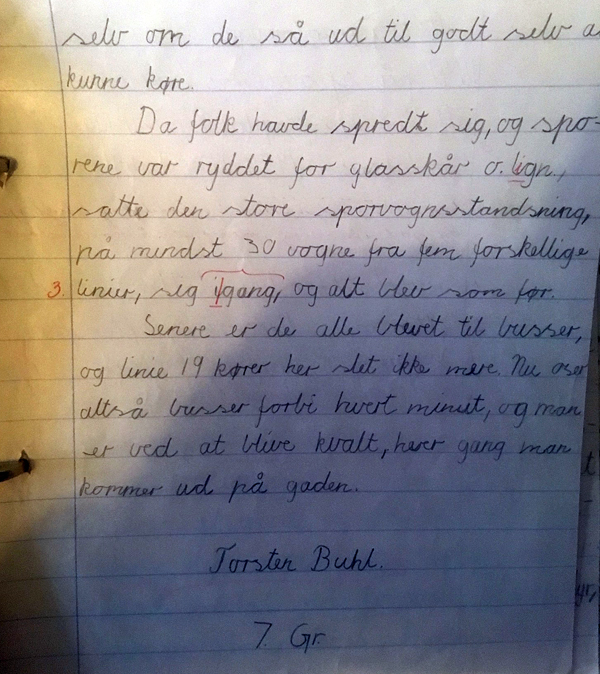 selv om de så ud til godt selv a
kunne køre.
Da folk havde spredt sig, og spo-
rene var ryddet for glasskår o. lign.,
satte den store sporvognsstandsning,
på mindst 30 vogne fra fem forskellige
3. linier, sig igang, og alt blev som før.
Senere er de alle blevet til busser,
og linie 19 kører her slet ikke mere. Nu oser
altså busser forbi hvert minut, og man
er ved at blive kvalt, hver gang man
kommer ud på gaden.
Torsten Buhl.
7. Gr.